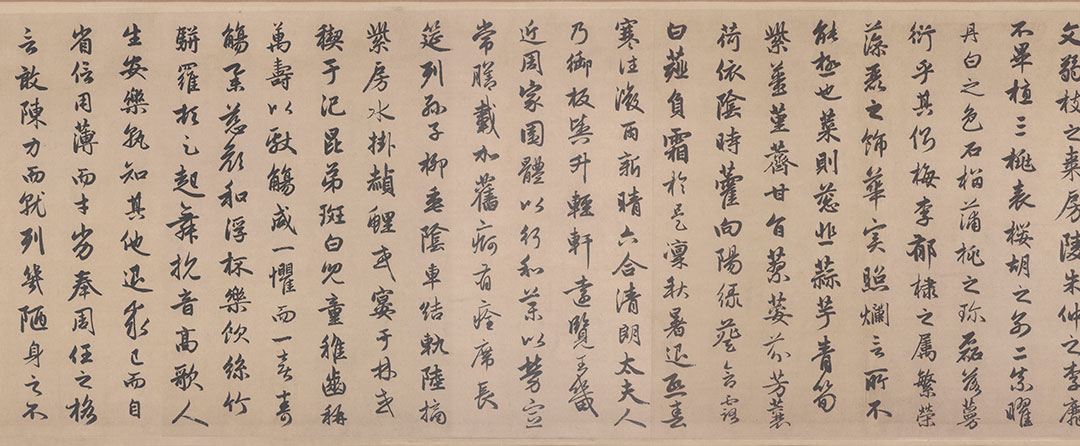 文弱枝之棗房陵朱仲之李靡
不畢植三桃表櫻胡之別二柰曜
丹白之色石榴蒲桃之珍磊落蔓
衍乎其側梅李郁棣之屬繁榮
藻麗之飾華實照爛言所不
能極也菜則蔥韭蒜芋青筍
紫薑堇薺甘旨蓼荽芬芳蘘
荷依陰時藿向陽綠葵含露
白薤負霜於是凜秋暑退熙春
寒往微雨新晴六合清朗太夫人
乃御板輿升輕軒遠覽王畿
近周家園體以行和藥以勞宣
常膳載加舊痾有痊席長
筵列孫子柳垂陰車結軌陸摘
紫房水掛赬鯉或宴于林或
禊于汜昆弟斑白兒童稚齒稱
萬壽以獻觴咸一懼而一喜壽
觴舉慈顏和浮杯樂飲絲竹
駢羅頓足起舞抗音高歌人
生安樂孰知其他退求己而自
省信用薄而才劣奉周任之格
言敢陳力而就列幾陋身之不